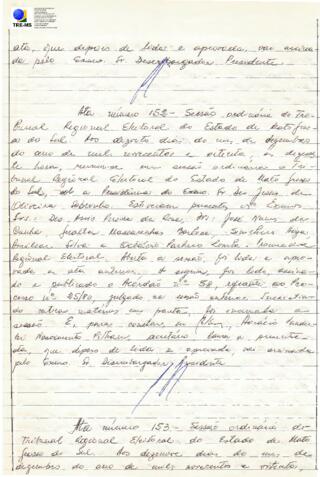 TRE-MS
ata, que depois de lida e aprovada, vai assina-
da pelo Exmo. Sr. Desembargador Presidente.
Ata número 152 - Sessão ordinária do Tri-
bunal Regional Eleitoral do Estado de Mato Gros-
so do Sul. Aos dezoito dias do mês de dezembro
do ano de mil novecentos e oitenta, às
reuniu-se em sessão ordinária o Tri-
bunal Regional Eleitoral do Estado de Mato Grosso
do Sul, sob a Presidência do Exmo. Sr. Des. Jesus de
Oliveira Sobrinho. Estiveram presentes os Exmos.
Srs: Des. da Rosa, Drs: José Nunes da
Cunha,
Silva e Pacheco
Regional Eleitoral. Aberta a sessão, foi lida e apro-
vada a ata anterior. A seguir, foi lido, assina-
do e publicado o Acórdão nº 58, referente ao Pro-
cesso nº 25/80, julgado na sessão anterior.
do outras matérias em pauta, foi encerrada a
sessão. E, para constar, eu,
secretário lavrei a presente
ata, que depois de lida e aprovada, vai assinada
pelo Exmo. Sr. Desembargador Presidente
Ata número 153 - Sessão ordinária do
Tribunal Regional Eleitoral do Estado de Mato
Grosso do Sul. Aos dezenove dias do mês de
dezembro, do ano de mil novecentos e oitenta,